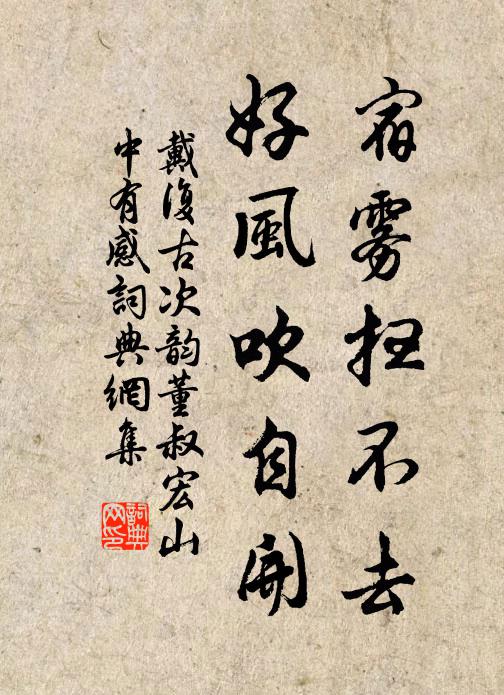 宿雾扫不去
好風吹自開
戴復古次韵董叔宏山
中有感詞典網集
詞典
网印